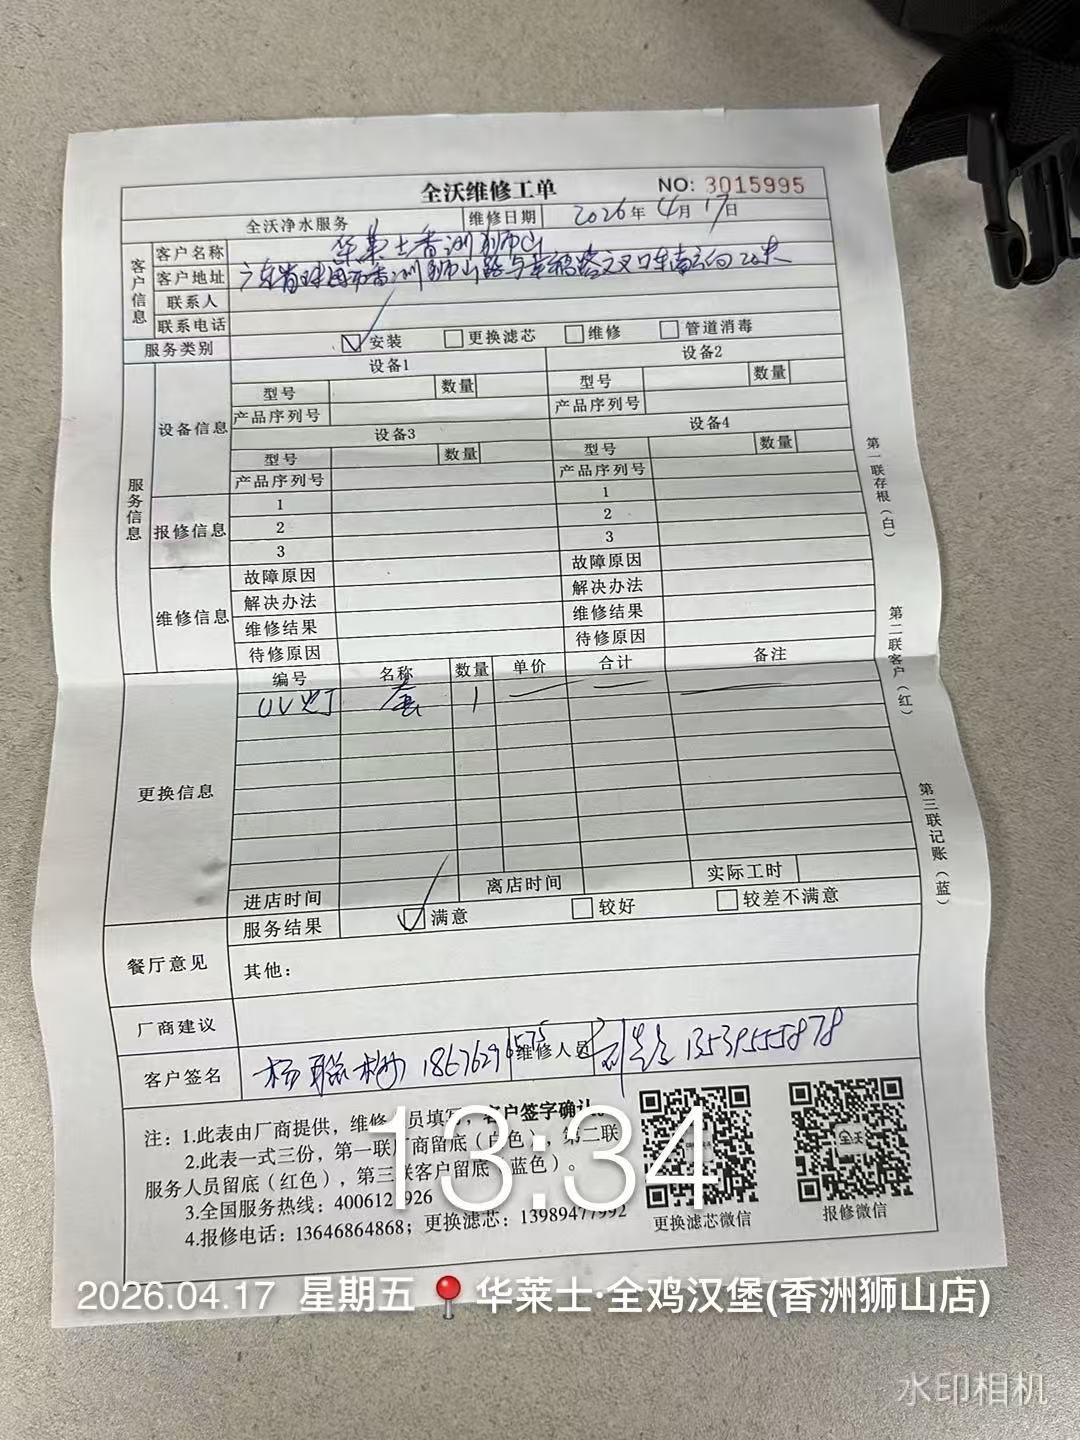 全沃维修工单 NO: 3015995
全沃净水服务 维修日期 2026年4月17日
客户信息
客户名称 华莱士香洲狮山
客户地址 广东省珠海市香洲狮山路与幸福路交叉口东南方向20米
联系人
联系电话
服务类别 安装 更换滤芯 维修 管道消毒
服务信息
设备信息
设备1 设备2
型号 数量 型号 数量
产品序列号 产品序列号
设备3 设备4
型号 数量 型号 数量
产品序列号 产品序列号
报修信息
1 1
2 2
3 3
维修信息
故障原因 故障原因
解决办法 解决办法
维修结果 维修结果
待修原因 待修原因
更换信息
编号 名称 数量 单价 合计 备注
UV灯 套 1
进店时间 离店时间 实际工时
服务结果 满意 较好 较差不满意
餐厅意见 其他：
厂商建议
客户签名 杨 18676296575 维修人员 13539555878
注：1.此表由厂商提供，维修人员填写，客户签字确认。
2.此表一式三份，第一联厂商留底（白色），第二联
服务人员留底（红色），第三联客户留底（蓝色）。
3.全国服务热线：400612 926
4.报修电话：13646864868；更换滤芯：13989477992
更换滤芯微信 报修微信
全沃
第一联存根（白）
第二联客户（红）
第三联记账（蓝）
13:34
2026.04.17 星期五 华莱士·全鸡汉堡(香洲狮山店)
水印相机